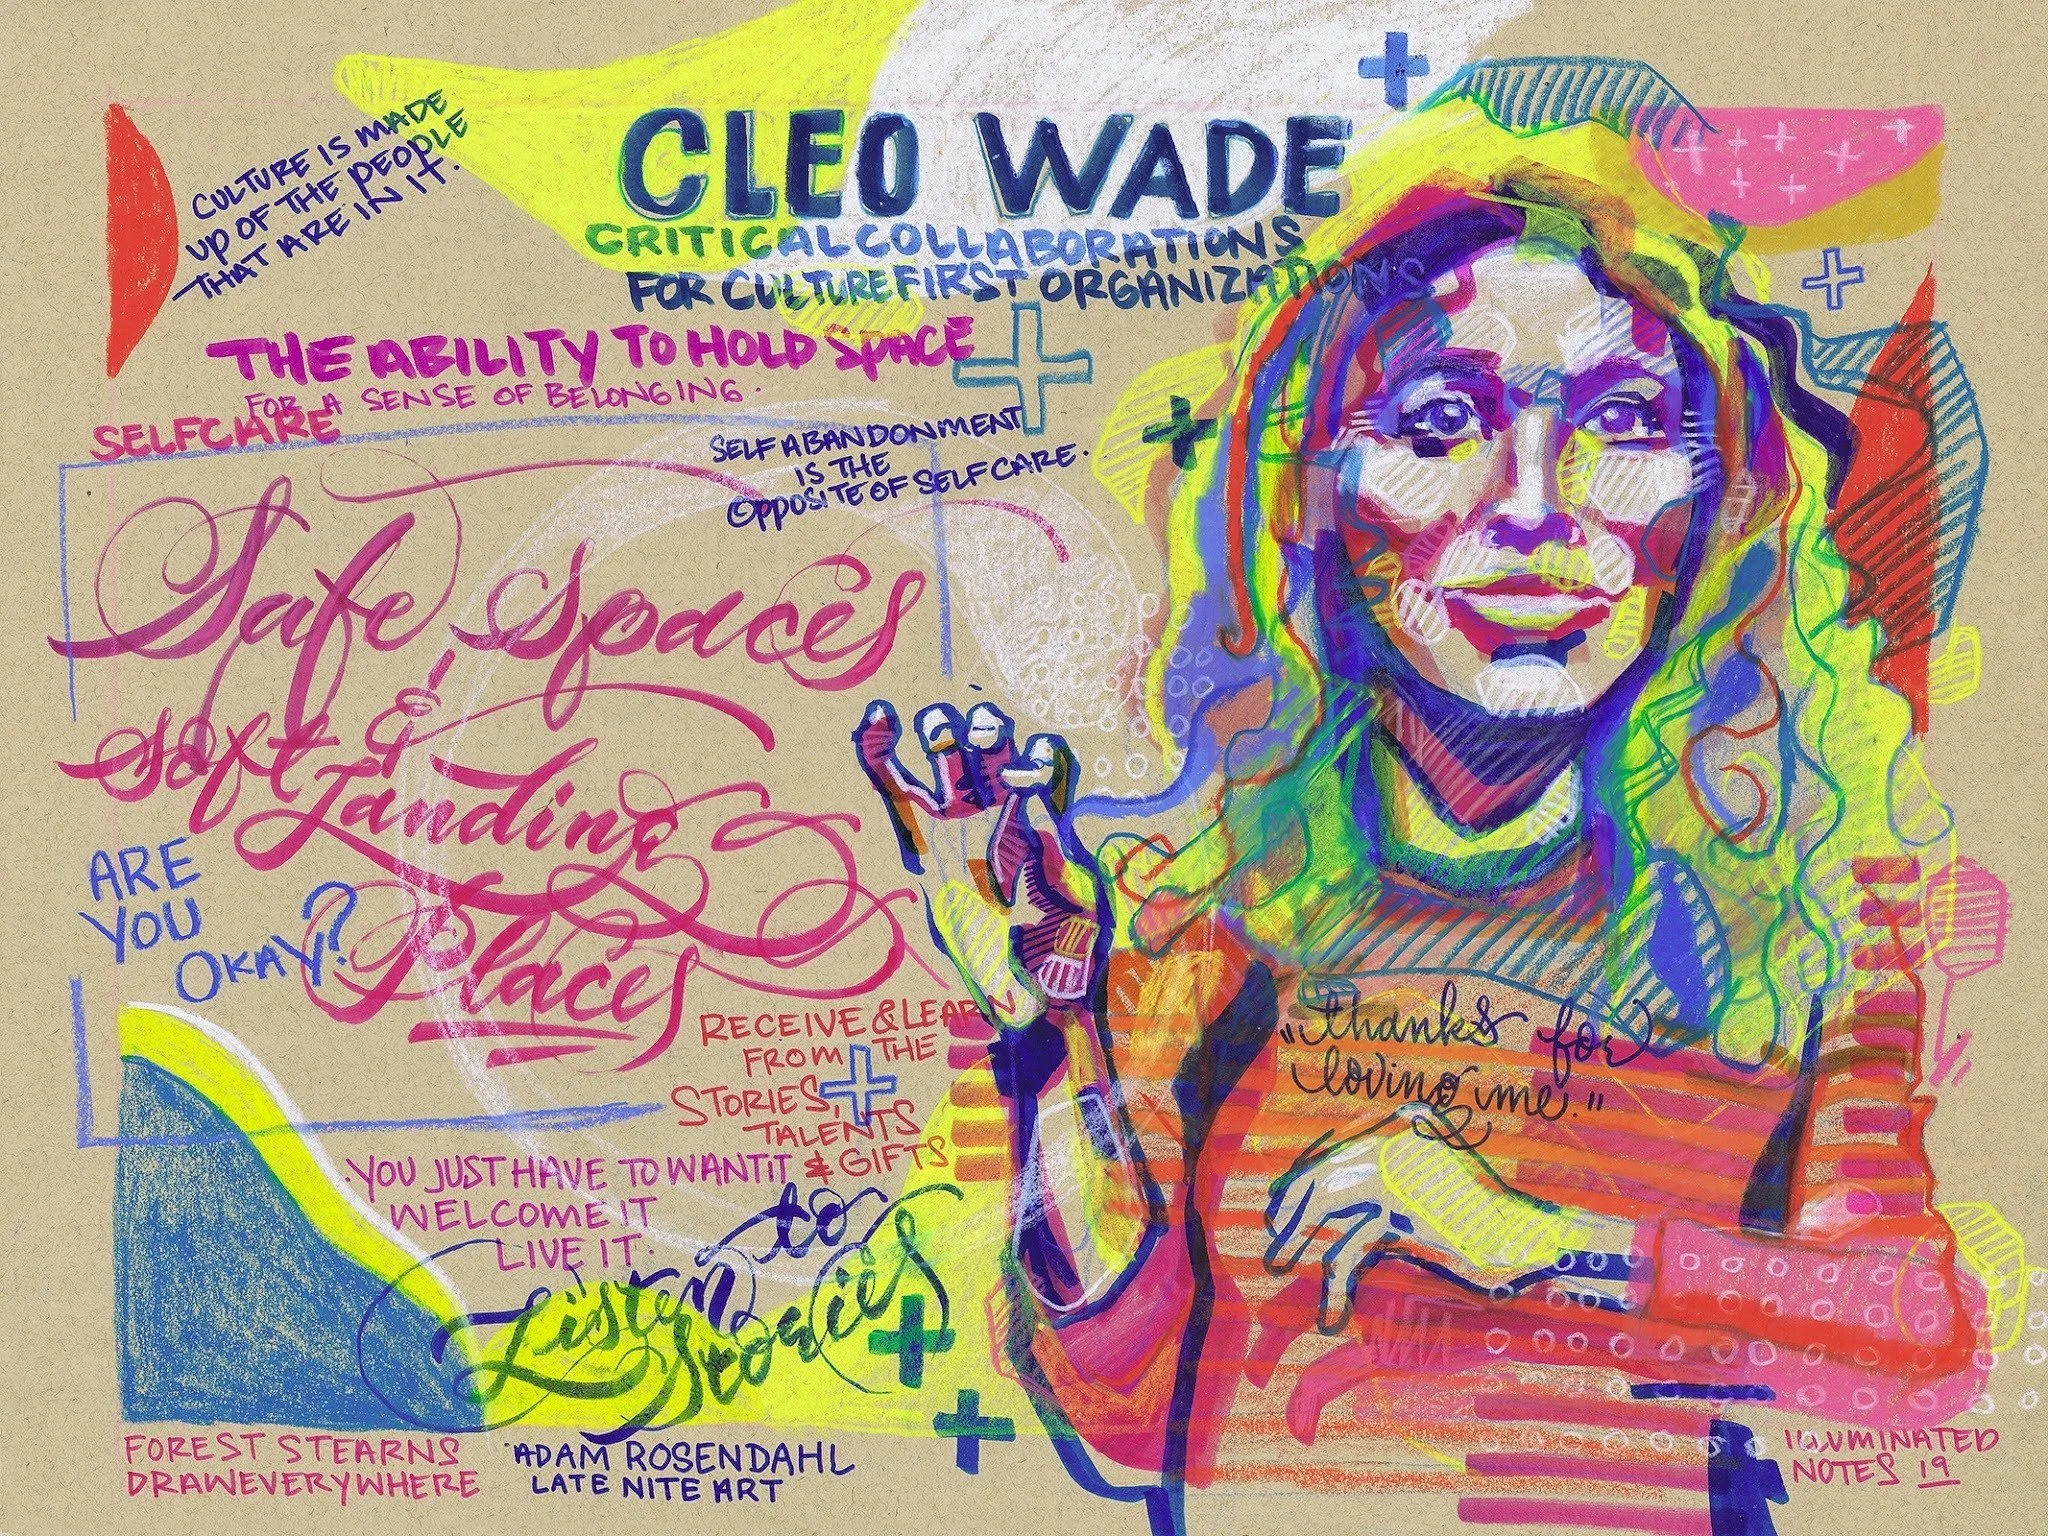 CLEO WADE
CRITICAL COLLABORATIONS
FOR CULTURE FIRST ORGANIZATIONS
CULTURE IS MADE
UP OF THE PEOPLE
THAT ARE IN IT.
THE ABILITY TO HOLD SPACE
FOR A SENSE OF BELONGING.
SELFCARE
SELF ABANDONMENT
IS THE
OPPOSITE OF SELF CARE.
Safe spaces
&
soft Landing
Places
ARE
YOU
OKAY?
RECEIVE & LEARN
FROM THE
STORIES,
TALENTS
& GIFTS
"thanks for
loving me."
YOU JUST HAVE TO WANT IT
WELCOME IT
LIVE IT.
Listen to
Stories
FOREST STEARNS
DRAWEVERYWHERE
ADAM ROSENDAHL
LATE NITE ART
ILLUMINATED
NOTES 19